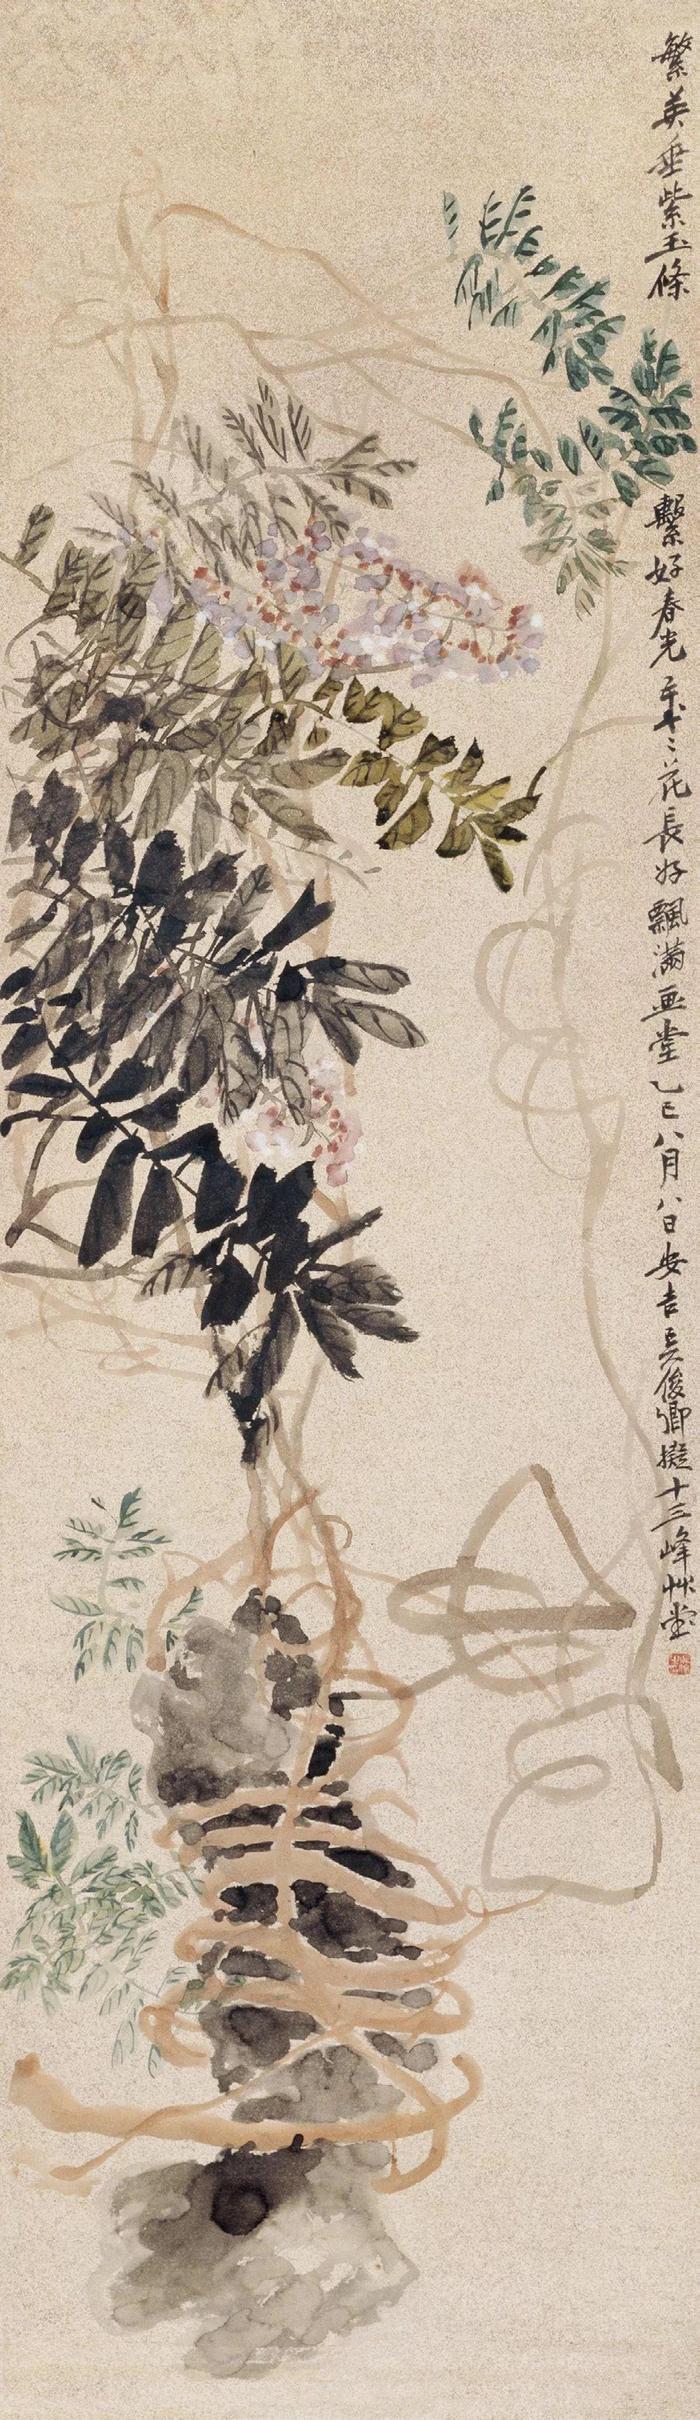 繁英垂紫玉條繫好春光歲歲花長好飄滿画堂乙巳八月八日安吉吳俊卿擬十三峰艸堂